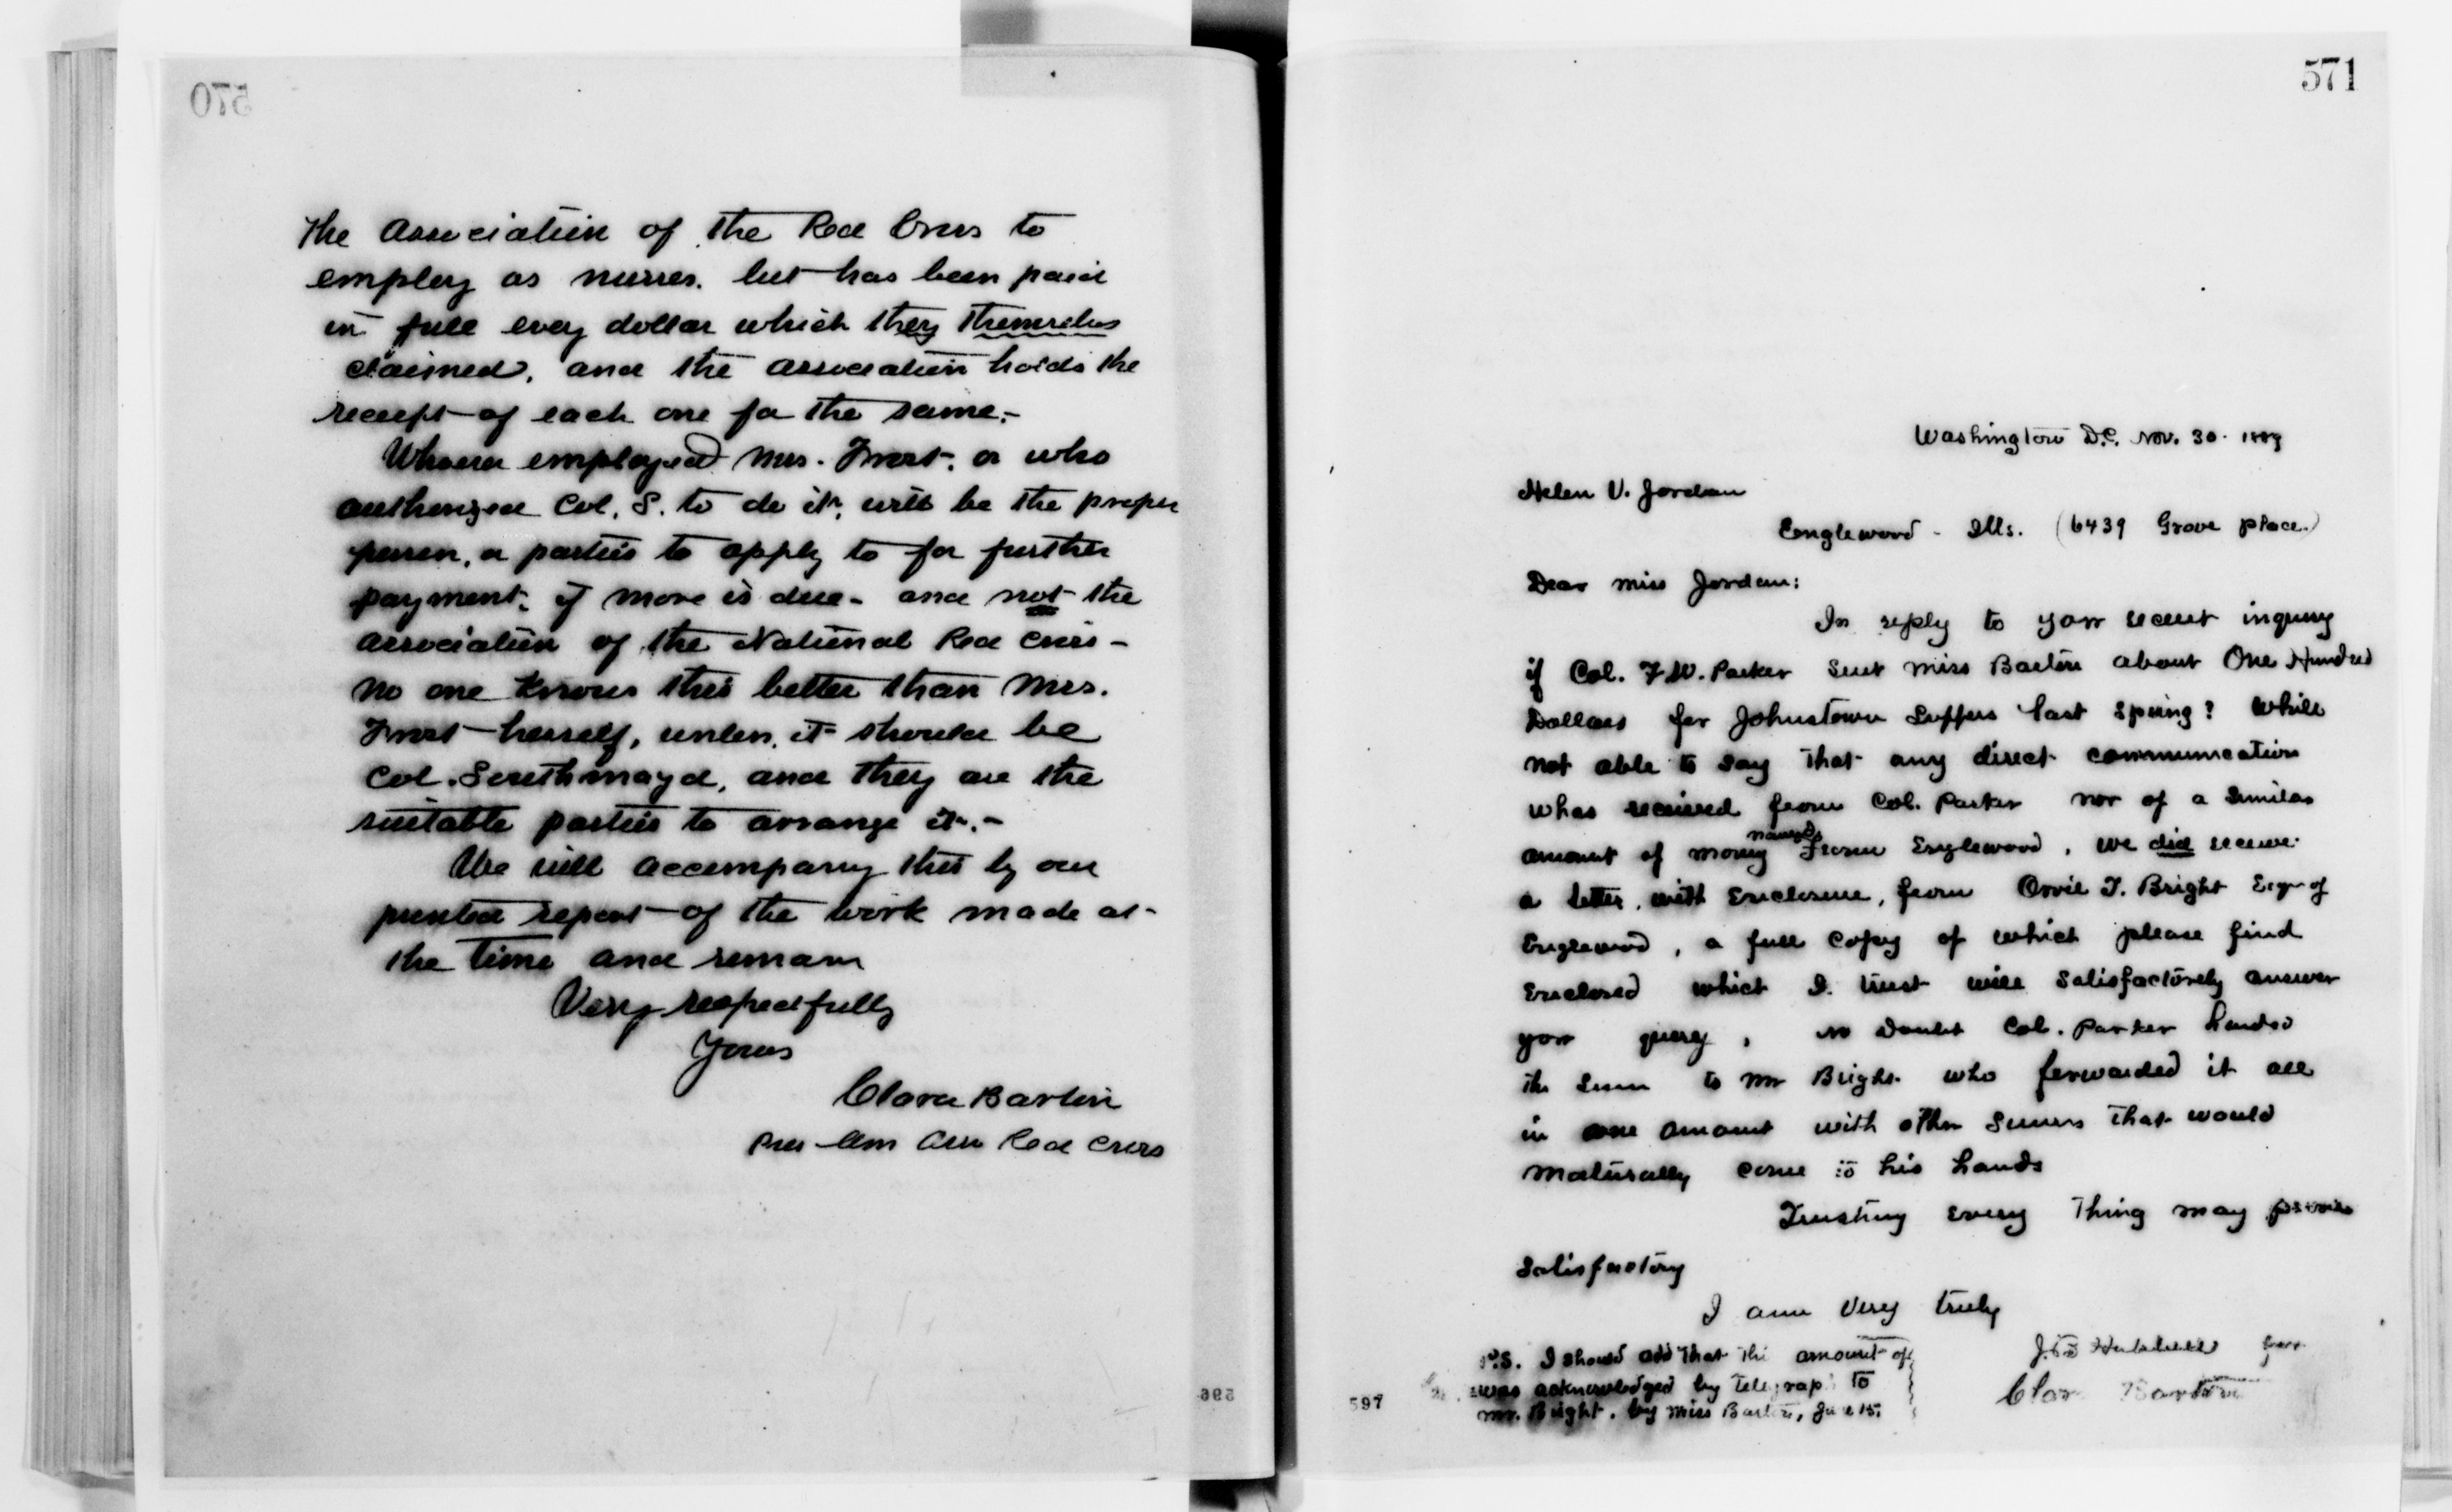 570
the Association of the Red Cross to
employ as nurses. but has been paid
in full every dollar which they themselves
claimed, and the association holds the
receipt of each one for the same.-
Whoever employed Mrs. Frost, or who
authorized Col. S. to do it, will be the proper
person, or parties to apply to for further
payment, if more is due - and not the
association of the National Red Cross -
no one knows this better than Mrs.
Frost herself, unless it should be
Col. Southmayd, and they are the
suitable parties to arrange it.-
We will accompany this by our
printed report of the work made at
the time and remain
Very respectfully
Yours
Clara Barton
Pres Am Assn Red Cross
596
571
Washington D.C. Nov. 30. 1889
Helen V. Jordan
Englewood - Ills. (6439 Grove place.)
Dear Miss Jordan:
In reply to your recent inquiry
if Col. F. W. Parker sent Miss Barton about One Hundred
Dollars for Johnstown Suffers last spring? While
not able to say that any direct communication
whas received from Col. Parker nor of a similar
amount of money named from Englewood, we did receive
a letter, with Enclosure, from Orvil T. Bright Esqr of
Englewood, a full copy of which please find
Enclosed which I trust will satisfactorily answer
your query, no doubt Col. Parker handed
the sum to Mr Bright who forwarded it all
in one amount with other sums that would
naturally come to his hands
Trusting every thing may prove
Satisfactory
I am Very truly
J. B. Hubbell
Clara Barton
P.S. I should add that the amount of
was acknowledged by telegraph to
Mr. Bright, by Miss Barton, June 15.
597